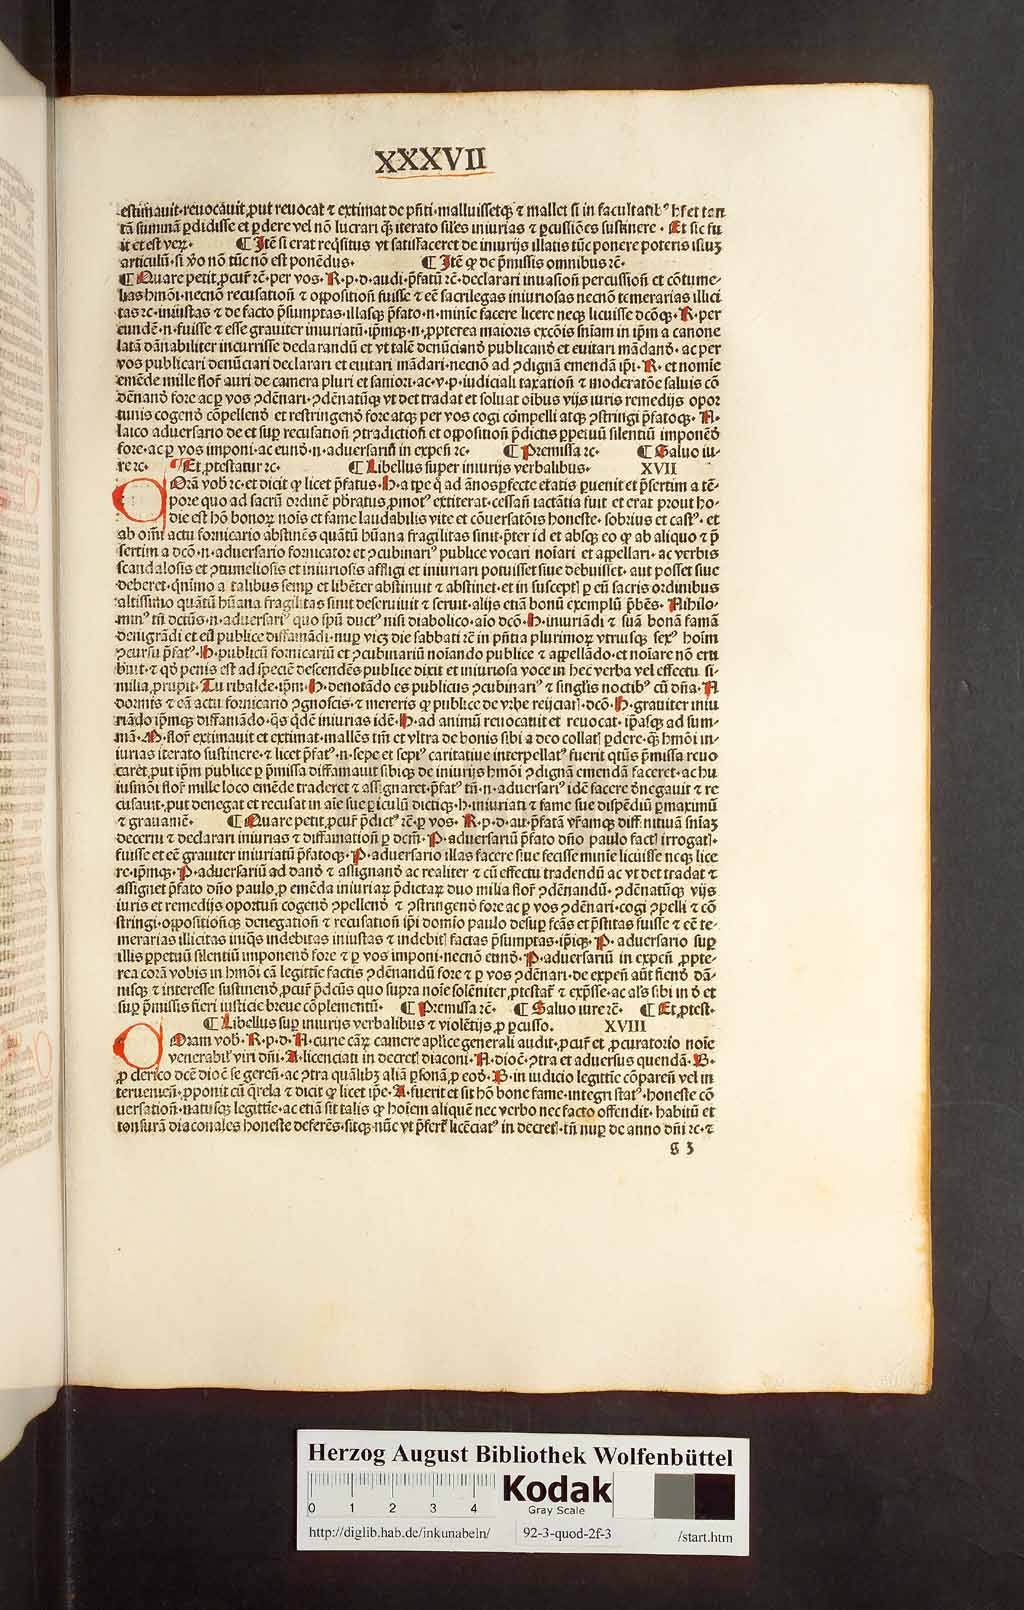 XXXVII
estimauit·reuocauit ꝓut reuocat ⁊ extimat de pn̄ti·malluissetqꝫ ⁊ mallet si in facultatibꝰ hr̄et tan
tā summā ꝑdidisse et ꝑdere vel nō lucrari qꝫ̄ iterato sil̄es iniurias ⁊ ꝑcussiōes sustinere· Et sic fu
it et est verꝝ· ¶ Itē si erat req̄situs vt satisfaceret de iniurijs illatis tūc ponere poteris istuꝫ
articulū·si v̄o nō tūc nō est ponēdus· ¶ Itē ꝙ de p̄missis omnibus ꝛc̄·
¶ Quare petit ꝓcur̄ ꝛc̄·per vos·R·p·d·audi·p̄fatū ꝛc̄·declarari inuasion̄ percussion̄ et cōtume-
lias hmōi·necnō recusation̄ ⁊ opposition̄ fuisse ⁊ eē sacrilegas iniuriosas necnō temerarias illici
tas ꝛc·iniustas ⁊ de facto p̄sumptas·illasqꝫ p̄fato·n·minīe facere licere necqꝫ licuisse dc̄oqꝫ·R·per
eundē·n·fuisse ⁊ esse grauiter iniuriatū·ip̄mqꝫ·n·ꝓpterea maioris excōis sn̄iam in ip̄m a canone
latā dānabiliter incurrisse declarandū et vt talē denūciand̄ publicand̄ et euitari mādand̄·ac per
vos publicari denūciari declarari et euitari mādari·necnō ad ꝯdignā emendā ip̄i·R·et nomīe
emēde mille flor̄ auri de camera pluri et saniori·ac·v·p·iudiciali taxation̄ ⁊ moderatōe saluis cō
dēnand̄ fore ac ꝑ vos ꝯdēnari·ꝯdēnatūqꝫ vt det tradat et soluat oībus vijs iuris remedijs opor
tunis cogend̄ cōpellend̄ et restringend̄ fore atqꝫ per vos cogi cōmpelli atqꝫ ꝯstringi p̄fatoqꝫ·N·
laico aduersario de et suꝑ recusation̄ ꝯtradiction̄ et opposition̄ p̄dictis ꝑpetuū silentiū imponēd̄
fore·ac ꝑ vos imponi·ac eund̄·n·aduersariū in expen̄ ꝛc̄· ¶ Premissa ꝛc̄· ¶ Saluo iu-
re ꝛc· ¶ Et ꝓtestatur ꝛc· ¶ Libellus super iniurijs verbalibus· XVII
Orā vob̄ ꝛc·et dicit ꝙ licet p̄fatus·H·a tꝑe q̄ ad ānos ꝑfecte etatis ꝑuenit et p̄sertim a tē-
pore quo ad sacrū ordinē pbr̄atus ꝓmotꝰ extiterat·cessan̄ iactātia fuit et erat prout ho-
die est hō bonoꝝ nois et fame laudabilis vite et cōuersatōis honeste·sobrius et castꝰ·et
ab om̄i actu fornicario abstinēs quātū hūana fragilitas sinit·p̄ter id et absqꝫ eo ꝙ ab aliquo ⁊ p̄
sertim a dc̄o·n·aduersario fornicator et ꝯcubinariꝰ publice vocari noīari et appellari·ac verbis
scandalosis et ꝯtumeliosis et iniuriosis affligi et iniuriari potuisset siue debuisset·aut posset siue
deberet·qn̄imo a talibus semꝑ et libēter abstinuit ⁊ abstinet·et in susceptꝭ ꝑ eū sacris ordinibus
altissimo quātū hūana fragilitas sinit deseruiuit ⁊ seruit·alijs etiā bonū exemplū p̄bēs·Nihilo-
minꝰ tn̄ dictūs·n·aduersariꝰ quo sp̄u ductꝰ nisi diabolico·aīo dc̄o·H·iniuriādi ⁊ suā bonā famā
denigrādi et eū publice diffamādi·nuꝑ viꝫ die sabbati ꝛc̄ in pn̄tia plurimoꝝ vtriusqꝫ sexꝰ hoīm
ꝯcursu p̄fatꝰ·H·publicū fornicariū et ꝯcubinariū noīando publice ⁊ appellādo·et noīare nō eru
buit·⁊ qd̄ penis est ad speciē descendēs publice dixit et iniuriosa voce in hec verba vel effectu si-
milia ꝓrupit·Tu ribalde·ip̄m·H·denotādo es publicus ꝯcubinariꝰ ⁊ singlis noctibꝰ cū dn̄a·N
dormis ⁊ eā actu fornicario ꝯgnoscis·⁊ mereris ꝙ publice de vrbe reijciarꝭ·dc̄o·H·grauiter iniu
riādo ip̄mqꝫ diffamādo·q̄s q̄dē iniurias idē·H·ad animū reuocauit et reuocat·ip̄asqꝫ ad sum-
mā·N·flor̄ extimauit et extimat·mallēs tm̄t et vltra de bonis sibi a deo collatꝭ ꝑdere·qꝫ̄ hmōi in-
iurias iterato sustinere·⁊ licet p̄fatꝰ·n·sepe et sepiꝰ caritatiue interpellatꝰ fuerit qt̄us p̄missa reuo
caret ꝓut ip̄m publice ꝑ p̄missa diffamauit sibiqꝫ de iniurijs hmōi ꝯdignā emendā faceret·ac hu
iusmōi flor̄ mille loco emēde traderet ⁊ assignaret·p̄fatꝰ tn̄·n·aduersariꝰ idē facere d̄negauit ⁊ re
cusauit ꝓut denegat et recusat in aīe sue ꝑiculū dictiqꝫ·h·iniuriati ⁊ fame sue dispēdiū ꝑmaximū
⁊ grauamē· ¶ Quare petit ꝓcur̄ p̄dictꝰ ꝛc̄·ꝑ vos·R·p·d·au·p̄fatā vr̄amqꝫ diffinituā sn̄iaꝫ
decerni ⁊ declarari iniurias ⁊ diffamation̄ ꝑ dc̄m·P·aduersariū p̄fato dn̄o paulo factꝭ irrogatꝭ·
fuisse et eē grauiter iniuriatū p̄fatoqꝫ·P·aduersario illas facere siue fecisse minīe licuisse necqꝫ lice
re·ip̄mqꝫ·P·aduersariū ad dand̄ ⁊ assignand̄ ac realiter ⁊ cū effectu tradendū ac vt det tradat ⁊
assignet p̄fato dn̄o paulo ꝓ emēda iniuriaꝝ p̄dictaꝝ duo milia flor̄ ꝯdēnandū·ꝯdēnatūqꝫ vijs
iuris et remedijs oportun̄ cogend̄ ꝯpellend̄ ⁊ ꝯstringend̄ fore ac ꝑ vos ꝯdēnari·cogi ꝯpelli ⁊ cō
stringi·oppositionēqꝫ denegation̄ ⁊ recusation̄ ip̄i domīo paulo desuꝑ fc̄as et p̄stitas fuisse ⁊ eē te-
merarias illicitas iniq̄s indebitas iniustas ⁊ indebitꝭ factas p̄sumptas·ip̄iqꝫ·P· aduersario suꝑ
illis ꝑpetuū silentiū imponend̄ fore ⁊ ꝑ vos imponi·necnō eund̄·P·aduersariū in expen̄ ꝓpte-
rea corā vobis in hmōi cā legittīe factis ꝯdēnandū fore ⁊ ꝑ vos ꝯdēnari·de expen̄ aūt fiend̄ dā-
nisqꝫ ⁊ interesse sustinend̄ ꝓcur̄ p̄dc̄us quo supra noīe solēniter ꝓtestat̄ ⁊ exp̄sse·ac als̄ sibi in d̄ et
suꝑ p̄missis fieri iusticie breue cōplementū· ¶ Premissa ꝛc̄· ¶ Saluo iure ꝛc̄· ¶ Et ꝓtest·
¶ Libellus suꝑ iniurijs verbalibus ⁊ violētijs ꝓ ꝑcusso. XVIII
Oram vob·R·p·d·N·curie caꝝ camere aplīce generali audit·ꝓcur̄ et ꝓcuratorio noīe
venerabil̄ viri dn̄i·A·licenciati in decretꝭ diaconi·N·dioc̄·ꝯtra et aduersus quendā·B·
ꝓ clerico dc̄ē dioc̄ se geren̄·ac ꝯtra quālibꝫ aliā ꝑsonā ꝓ eod̄·B·in iudicio legittīe cōparen̄ vel in
teruenien̄·ꝓponit cū q̄rela ⁊ dicit ꝙ licet ip̄e·A·fuerit et sit hō bone fame·integri statꝰ·honeste cō
uersation̄·natusqꝫ legittīe·ac etiā sit talis ꝙ hoīem aliquē nec verbo nec facto offendit·habitū et
tonsurā diaconales honeste deferēs·sitqꝫ nūc vt p̄fert̄ licēciatꝰ in decretꝭ·tn̄ nuꝑ de anno dn̄i ꝛc·⁊
g 3
Herzog August Bibliothek Wolfenbüttel
0 1 2 3 4
Kodak
Gray Scale
http://diglib.hab.de/inkunabeln/ 92-3-quod-2f-3 /start.htm